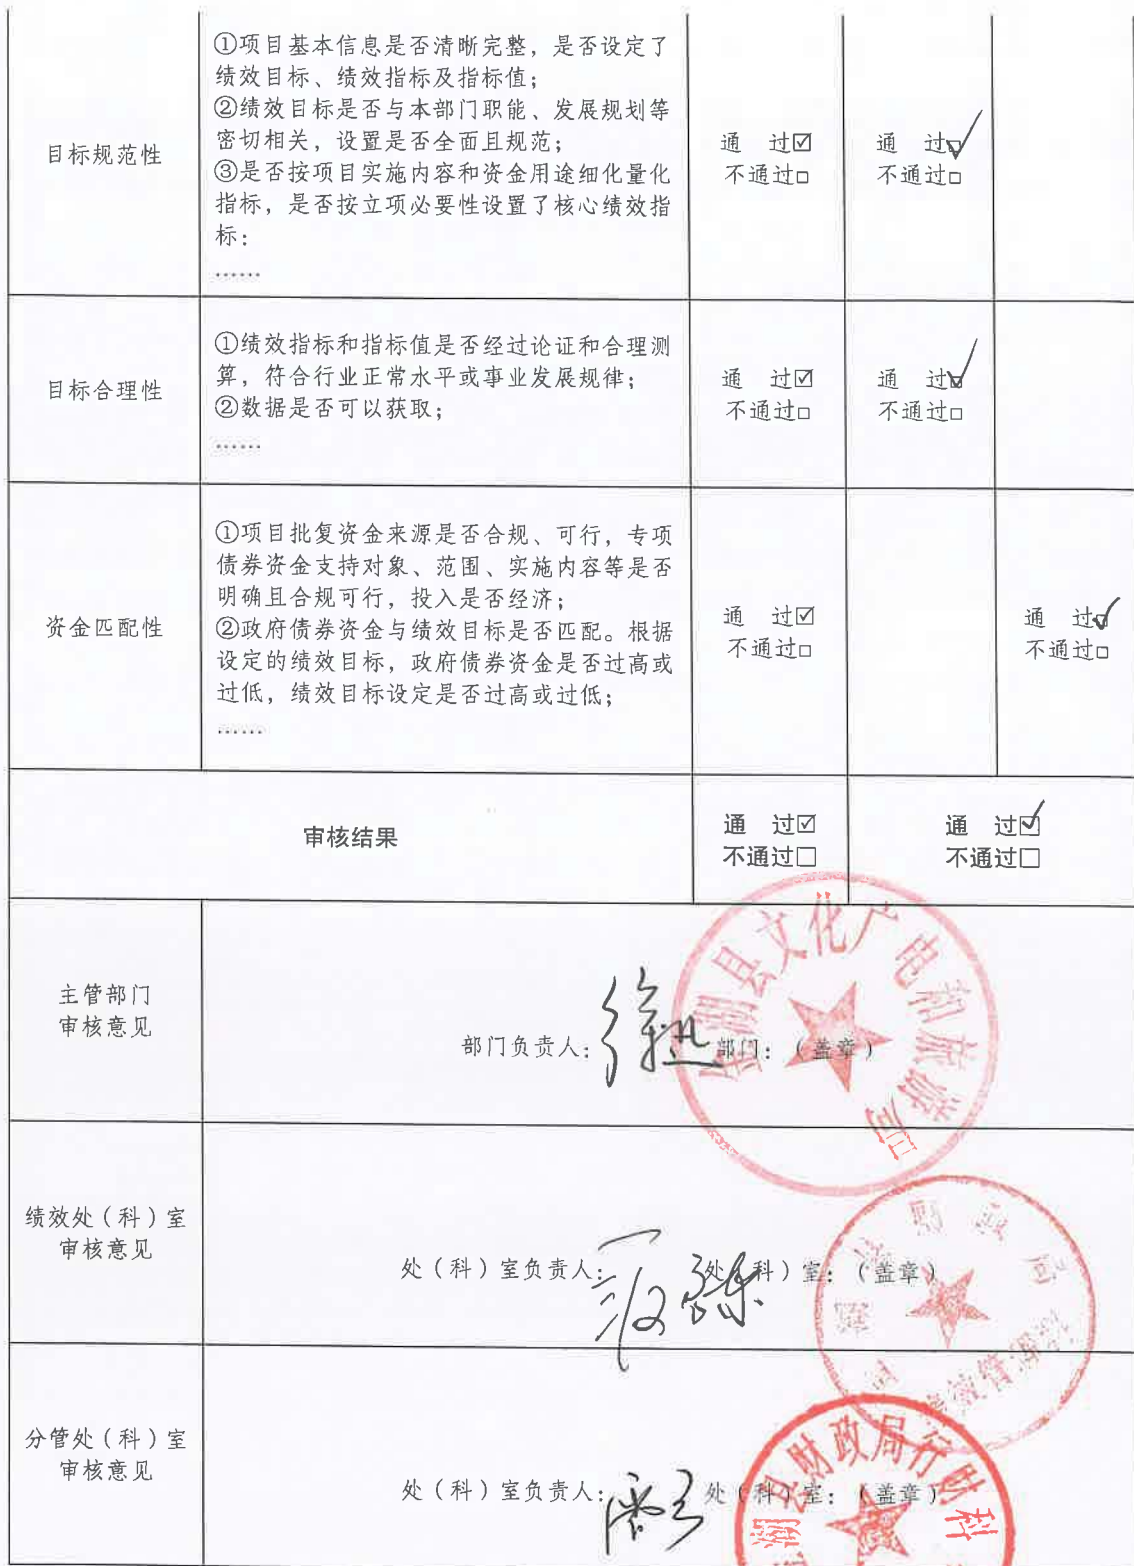 ①项目基本信息是否清晰完整，是否设定了
绩效目标、绩效指标及指标值；
②绩效目标是否与本部门职能、发展规划等
密切相关，设置是否全面且规范；
③是否按项目实施内容和资金用途细化量化
指标，是否按立项必要性设置了核心绩效指
标：
……
目标规范性
通　过☑
不通过□
通　过☑
不通过□
①绩效指标和指标值是否经过论证和合理测
算，符合行业正常水平或事业发展规律；
②数据是否可以获取；
……
目标合理性
通　过☑
不通过□
通　过☑
不通过□
①项目批复资金来源是否合规、可行，专项
债券资金支持对象、范围、实施内容等是否
明确且合规可行，投入是否经济；
②政府债券资金与绩效目标是否匹配。根据
设定的绩效目标，政府债券资金是否过高或
过低，绩效目标设定是否过高或过低；
……
资金匹配性
通　过☑
不通过□
通　过☑
不通过□
审核结果
通　过☑
不通过□
通　过☑
不通过□
主管部门
审核意见
部门负责人：
部门：（盖章）
湖县文化广电和旅游局
绩效处（科）室
审核意见
处（科）室负责人：
处（科）室：（盖章）
分管处（科）室
审核意见
处（科）室负责人：
处（科）室：（盖章）
湖县财政局行财科